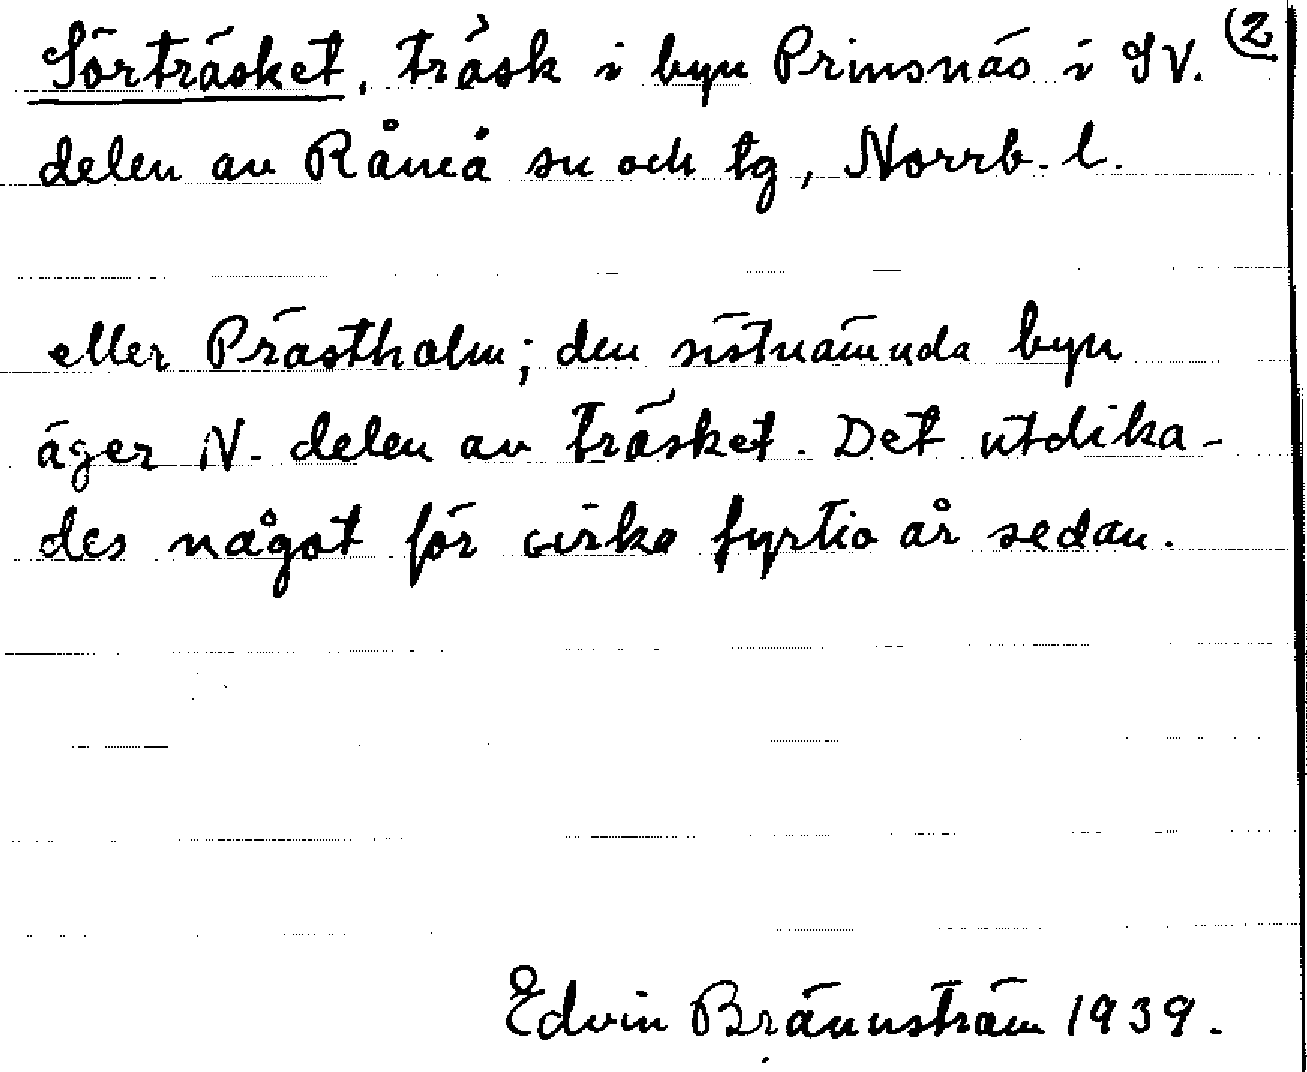 Sörträsket, träsk i byn Prinsnäs i SV. (2
delen av Råneå sn och tg, Norrb. l.
eller Prästholm; den sistnämnda byn
äger N. delen av träsket. Det utdika-
des något för cirka fyrtio år sedan.
Edvin Brännström 1939.